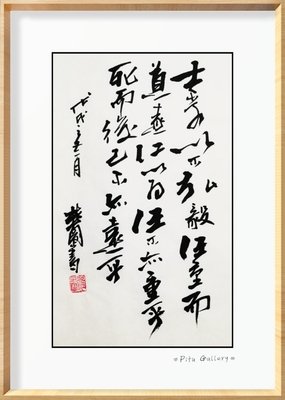 士不可以不弘毅任重而
道遠仁以為己任不亦重乎
死而後已不亦遠乎
戊戌 月
書
¤Pitu Gallery¤